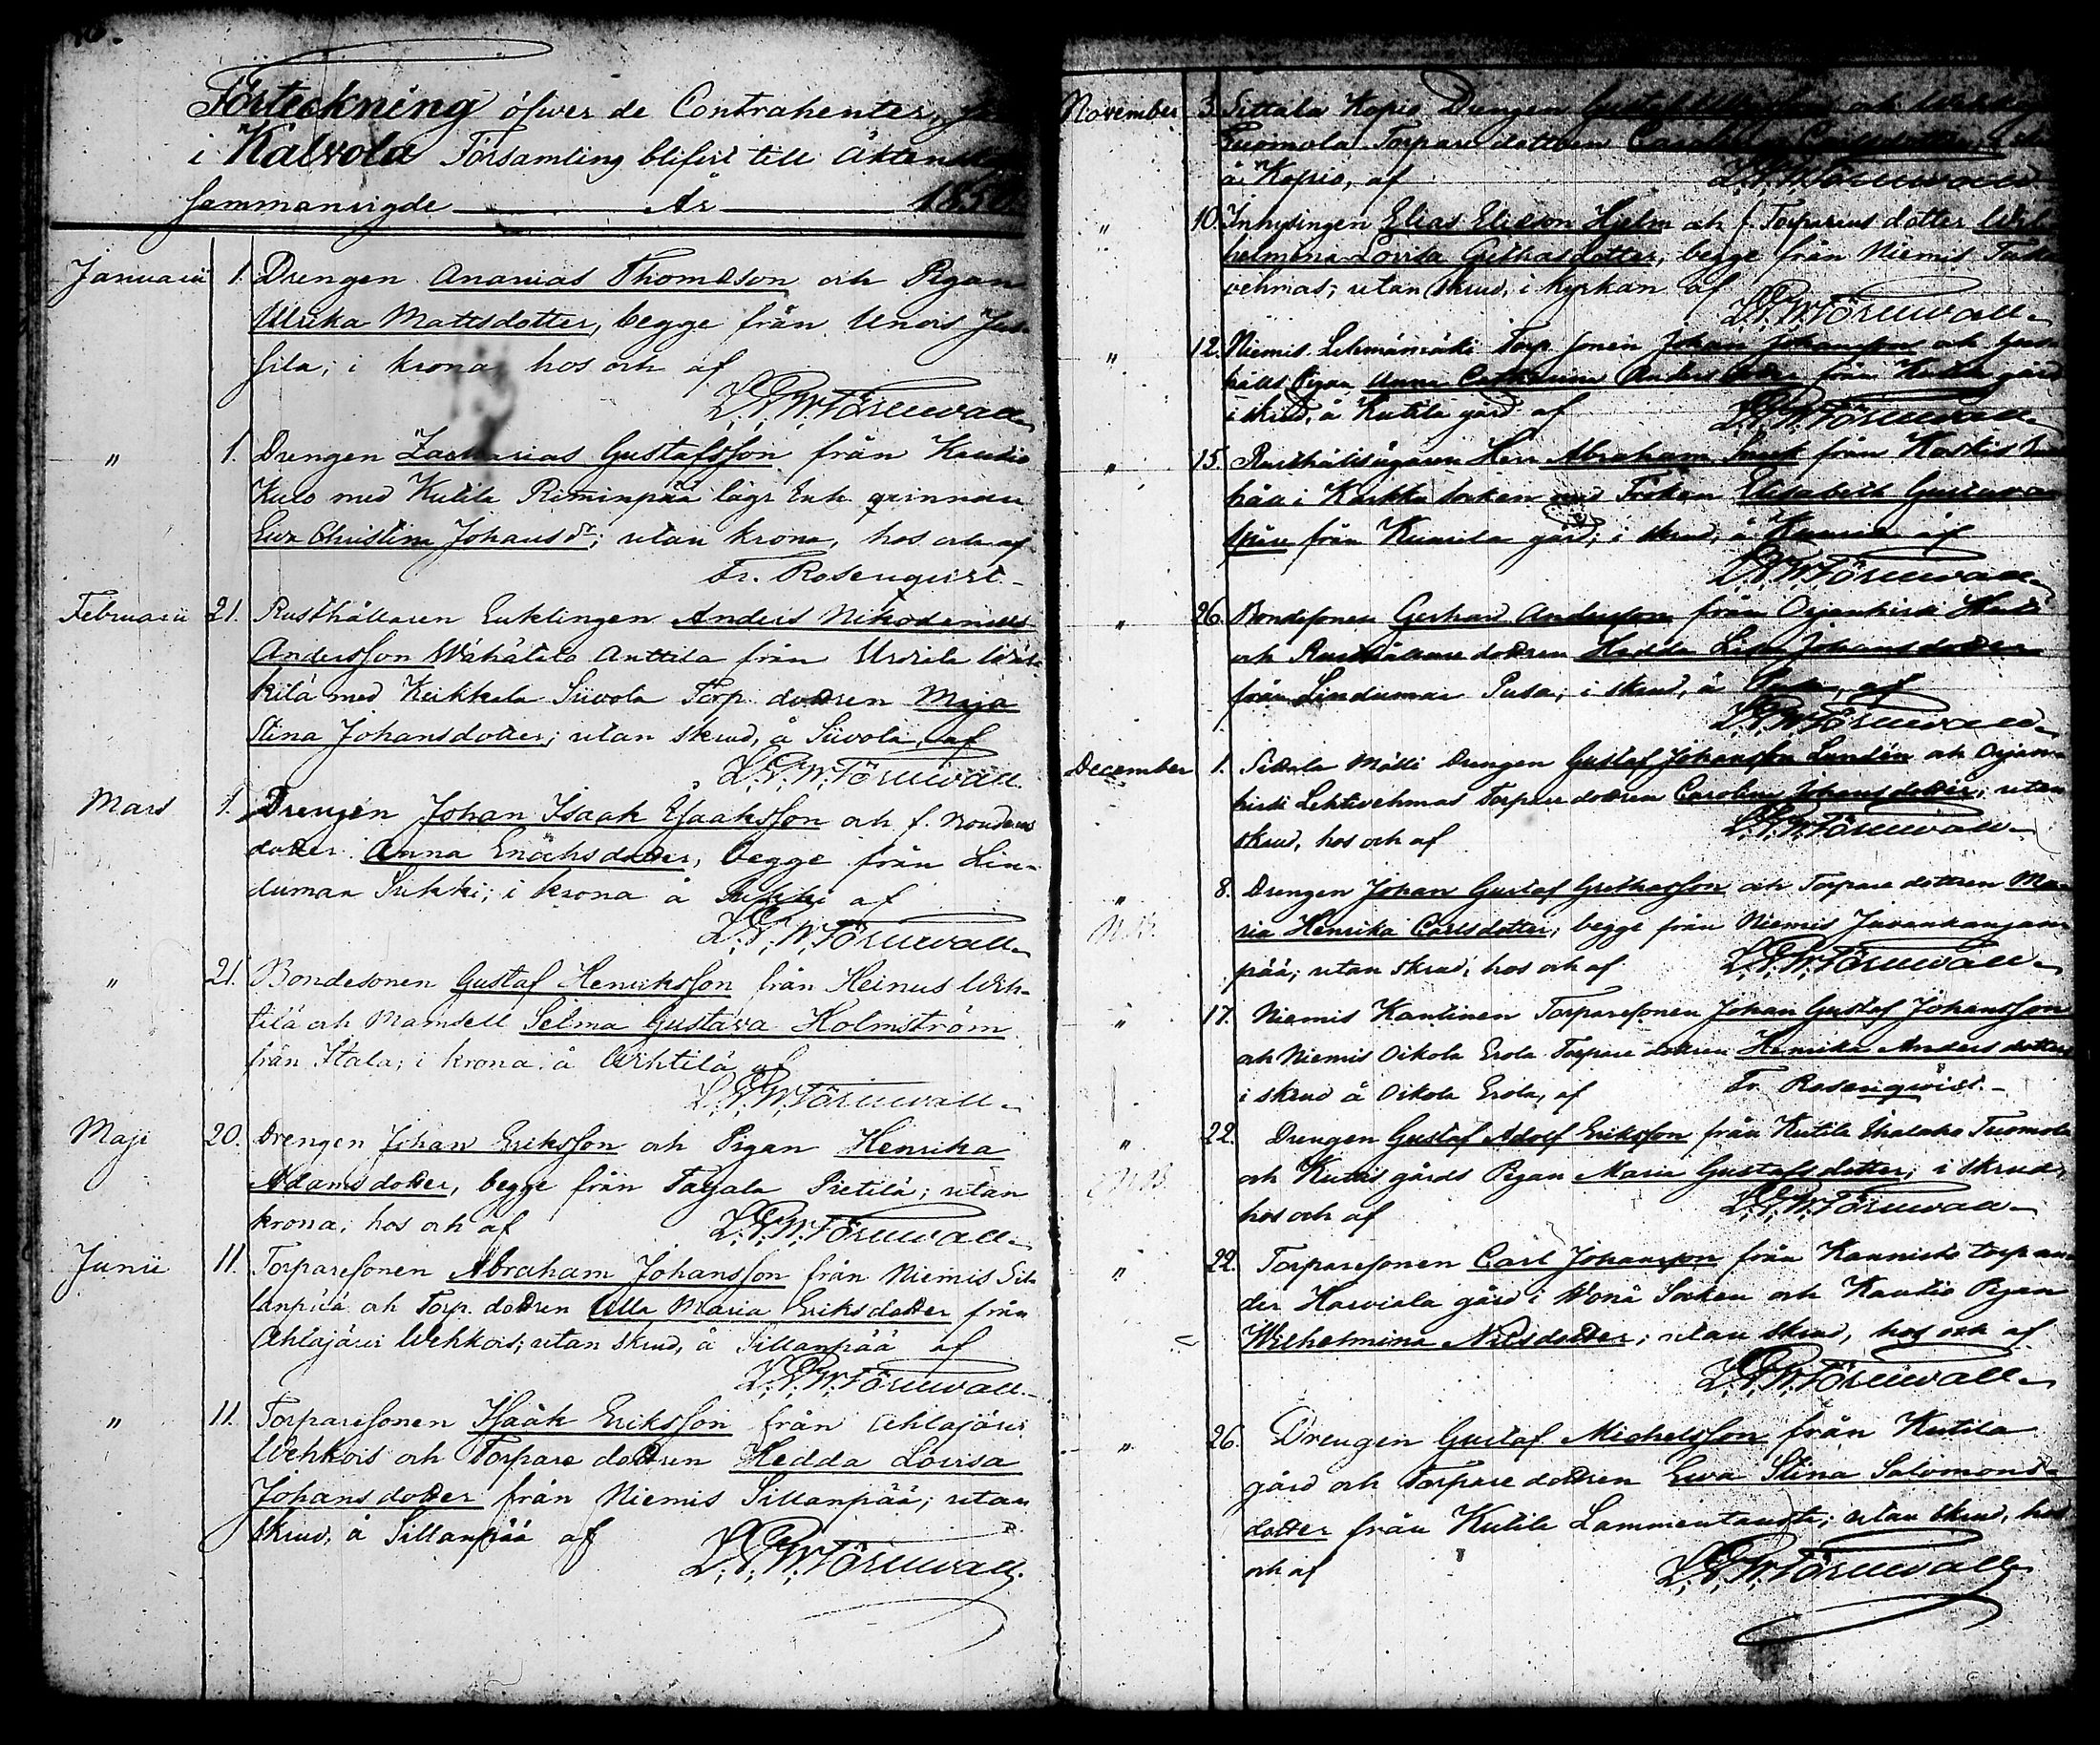 Förteckning öfwer de Contrahenter,
i Kalvola Församling blifvit till Äktenskap
sammanvigde År 1850.
Januarii 1. Drengen Ananias Thomasson och Pigan
Ulrika Mattsdotter, begge från Unois
sila; i krona, hos och af
L.G.W. Törnwall
" 1. Drengen Zacharias Gustafsson från Kautio
med Kutila Riminpää lägr Enk qvinnan
Ewa Christina Johansdr; utan krona, hos och af
Fr. Rosenqvist
Februarii 21. Rusthållaren Enklingen Anders Nikodemus
Andersson Wähätalo Anttila från Urdiala
kilä med Keikkala Siivola Torp. dottren Maja
Stina Johansdotter; utan skrud, å Siivola, af
L.G.W. Törnwall
Mars 1. Drengen Johan Isaak Isaaksson och f. Bondens
dotter Anna Enochsdotter, begge från Lin-
duman Sukki; i krona å Sukki af
L.G.W. Törnwall
" 21. Bondesonen Gustaf Henriksson från Heinus Wih-
tilä och Mamsell Selma Gustava Holmström
från Itala; i krona å Wihtilä af
L.G.W. Törnwall
Maji 20. Drengen Johan Eriksson och Pigan Henrika
Adamsdotter, begge från Taljala Pietilä; utan
krona, hos och af L.G.W. Törnwall
Junii 11. Torparesonen Abraham Johansson från Niemis Sil-
lanpää och Torp. dottren Ulla Maria Eriksdotter från
Ahlajärvi Wehkois; utan skrud, å Sillanpää af
L.G.W. Törnwall
" 11. Torparesonen Isaak Eriksson från Ahlajärvi
Wehkois och Torpare dottren Hedda Lovisa
Johansdotter från Niemis Sillanpää; utan
skrud, å Sillanpää af L.G.W. Törnwall
November 3. Sittala Kopio Drengen och
Tuomola Torpare dottren
å Kopio, af L.G.W. Törnwall
" 10. Inhysingen Elias Eliesson Hjelm och f. Torparens dotter Wil-
helmina Lovisa Gethasdotter, begge från Niemis
vehmas; utan skrud, i kyrkan af
L.G.W. Törnwall
" 12. Niemis Torp. sonen Johan Johansson och
hålls Pigan Anna Catharina Andersdotter från Kutila gård
i skrud, å Kutila gård af L.G.W. Törnwall
" 15. Rusthållsägaren Herr Abraham från
pää i Karkku socken med Fröken Elisabeth Gustava
från Kuurila gård; i skrud, å Kuurila af
L.G.W. Törnwall
" 26. Bondesonen Gerhard Andersson från Orjanhirsi
och Rusthållare dottren Hedda Lisa Johansdotter
från Linduman Pusa; i skrud, å Pusa, af
L.G.W. Törnwall
December 1. Sittala Mälli Drengen Gustaf Johansson Lundén och Orjan-
hirsi Lehtivehmas Torpare dottren Carolina Johansdotter; utan
skrud, hos och af L.G.W. Törnwall
" 8. Drengen Johan Gustaf Gethasson och Torpare dottren Ma-
NB. ria Henrika Carlsdotter, begge från Niemis Javankanjan-
pää; utan skrud, hos och af L.G.W. Törnwall
" 17. Niemis Kantinen Torparesonen Johan Gustaf Johansson
och Niemis Oikola Erola Torpare dottren Henrika Andersdotter
i skrud å Oikola Erola, af Fr. Rosenqwist
" 22. Drengen Gustaf Adolf Eriksson från Kutila Tuomola
NB. och Kutila gårds Pigan Maria Gustafsdotter; i skrud,
hos och af L.G.W. Törnwall
" 22. Torparesonen Carl Johansson från Kannisto torp un-
der Harviala gård i Wånå Socken och Kautio Pigan
Wilhelmina Nilsdotter; utan skrud, hos och af
L.G.W. Törnwall
" 26. Drengen Gustaf Michelsson från Kutila
gård och Torpare dottren Ewa Stina Salomons-
dotter från Kutila Lammentausta; utan skrud, hos
och af L.G.W. Törnwall